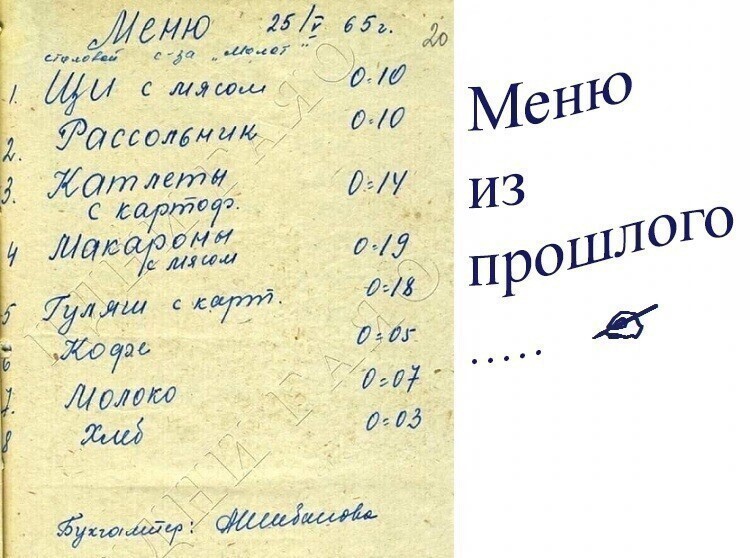 Меню 25/V 65г. 20
столовой с-за „Молот"
1. Щи с мясом 0=10
2. Рассольник 0=10
3. Катлеты 0=14
с картоф.
4 Макароны 0=19
с мясом
5 Гуляш с карт. 0=18
6 Кофе 0=05
7. Молоко 0=07
8 Хлеб 0=03
Бухгалтер:
Меню
из
прошлого
.....